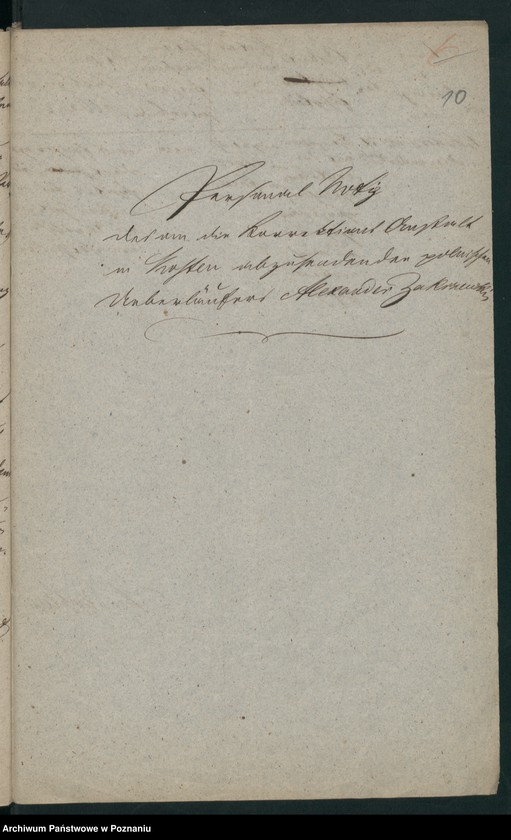 10
Personal Notiz
des an die Korrektions Anstalt
in Kosten abzusendenden polnischen
Ueberläufers Alexander Zakrzewski
Archiwum Państwowe w Poznaniu